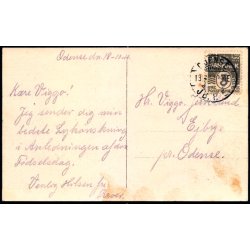 Odense den 18-12-
Kære Viggo!
Jeg sender dig min
bedste Lykønskning
i Anledningen af din
Fødselsdag.
Venlig Hilsen fra
Hr. Viggo
Ejby
pr. Odense.